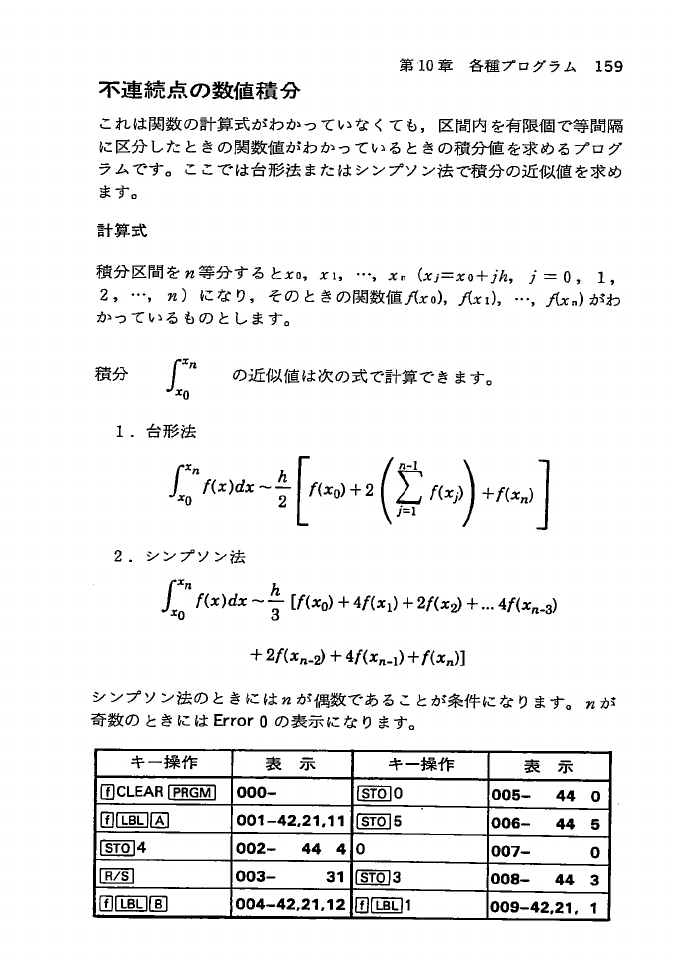 第10章　各種プログラム　159
不連続点の数値積分
これは関数の計算式がわかっていなくても，区間内を有限個で等間隔
に区分したときの関数値がわかっているときの積分値を求めるプログ
ラムです。ここでは台形法またはシンプソン法で積分の近似値を求め
ます。
計算式
積分区間を n 等分すると x₀, x₁, …, xₙ (xⱼ=x₀+jh, j = 0, 1,
2, …, n) になり，そのときの関数値 f(x₀), f(x₁), …, f(xₙ) がわ
かっているものとします。
積分　∫_{x₀}^{xₙ}　の近似値は次の式で計算できます。
1．台形法
∫_{x₀}^{xₙ} f(x)dx ~ h/2 [ f(x₀) + 2 ( ∑_{j=1}^{n-1} f(xⱼ) ) + f(xₙ) ]
2．シンプソン法
∫_{x₀}^{xₙ} f(x)dx ~ h/3 [f(x₀) + 4f(x₁) + 2f(x₂) + ... 4f(xₙ₋₃)
+ 2f(xₙ₋₂) + 4f(xₙ₋₁) + f(xₙ)]
シンプソン法のときには n が偶数であることが条件になります。n が
奇数のときには Error 0 の表示になります。
キー操作　表　示　キー操作　表　示
f CLEAR PRGM　000–　STO 0　005–　44　0
f LBL A　001–42,21,11　STO 5　006–　44　5
STO 4　002–　44　4　0　007–　0
R/S　003–　31　STO 3　008–　44　3
f LBL B　004–42,21,12　f LBL 1　009–42,21,　1